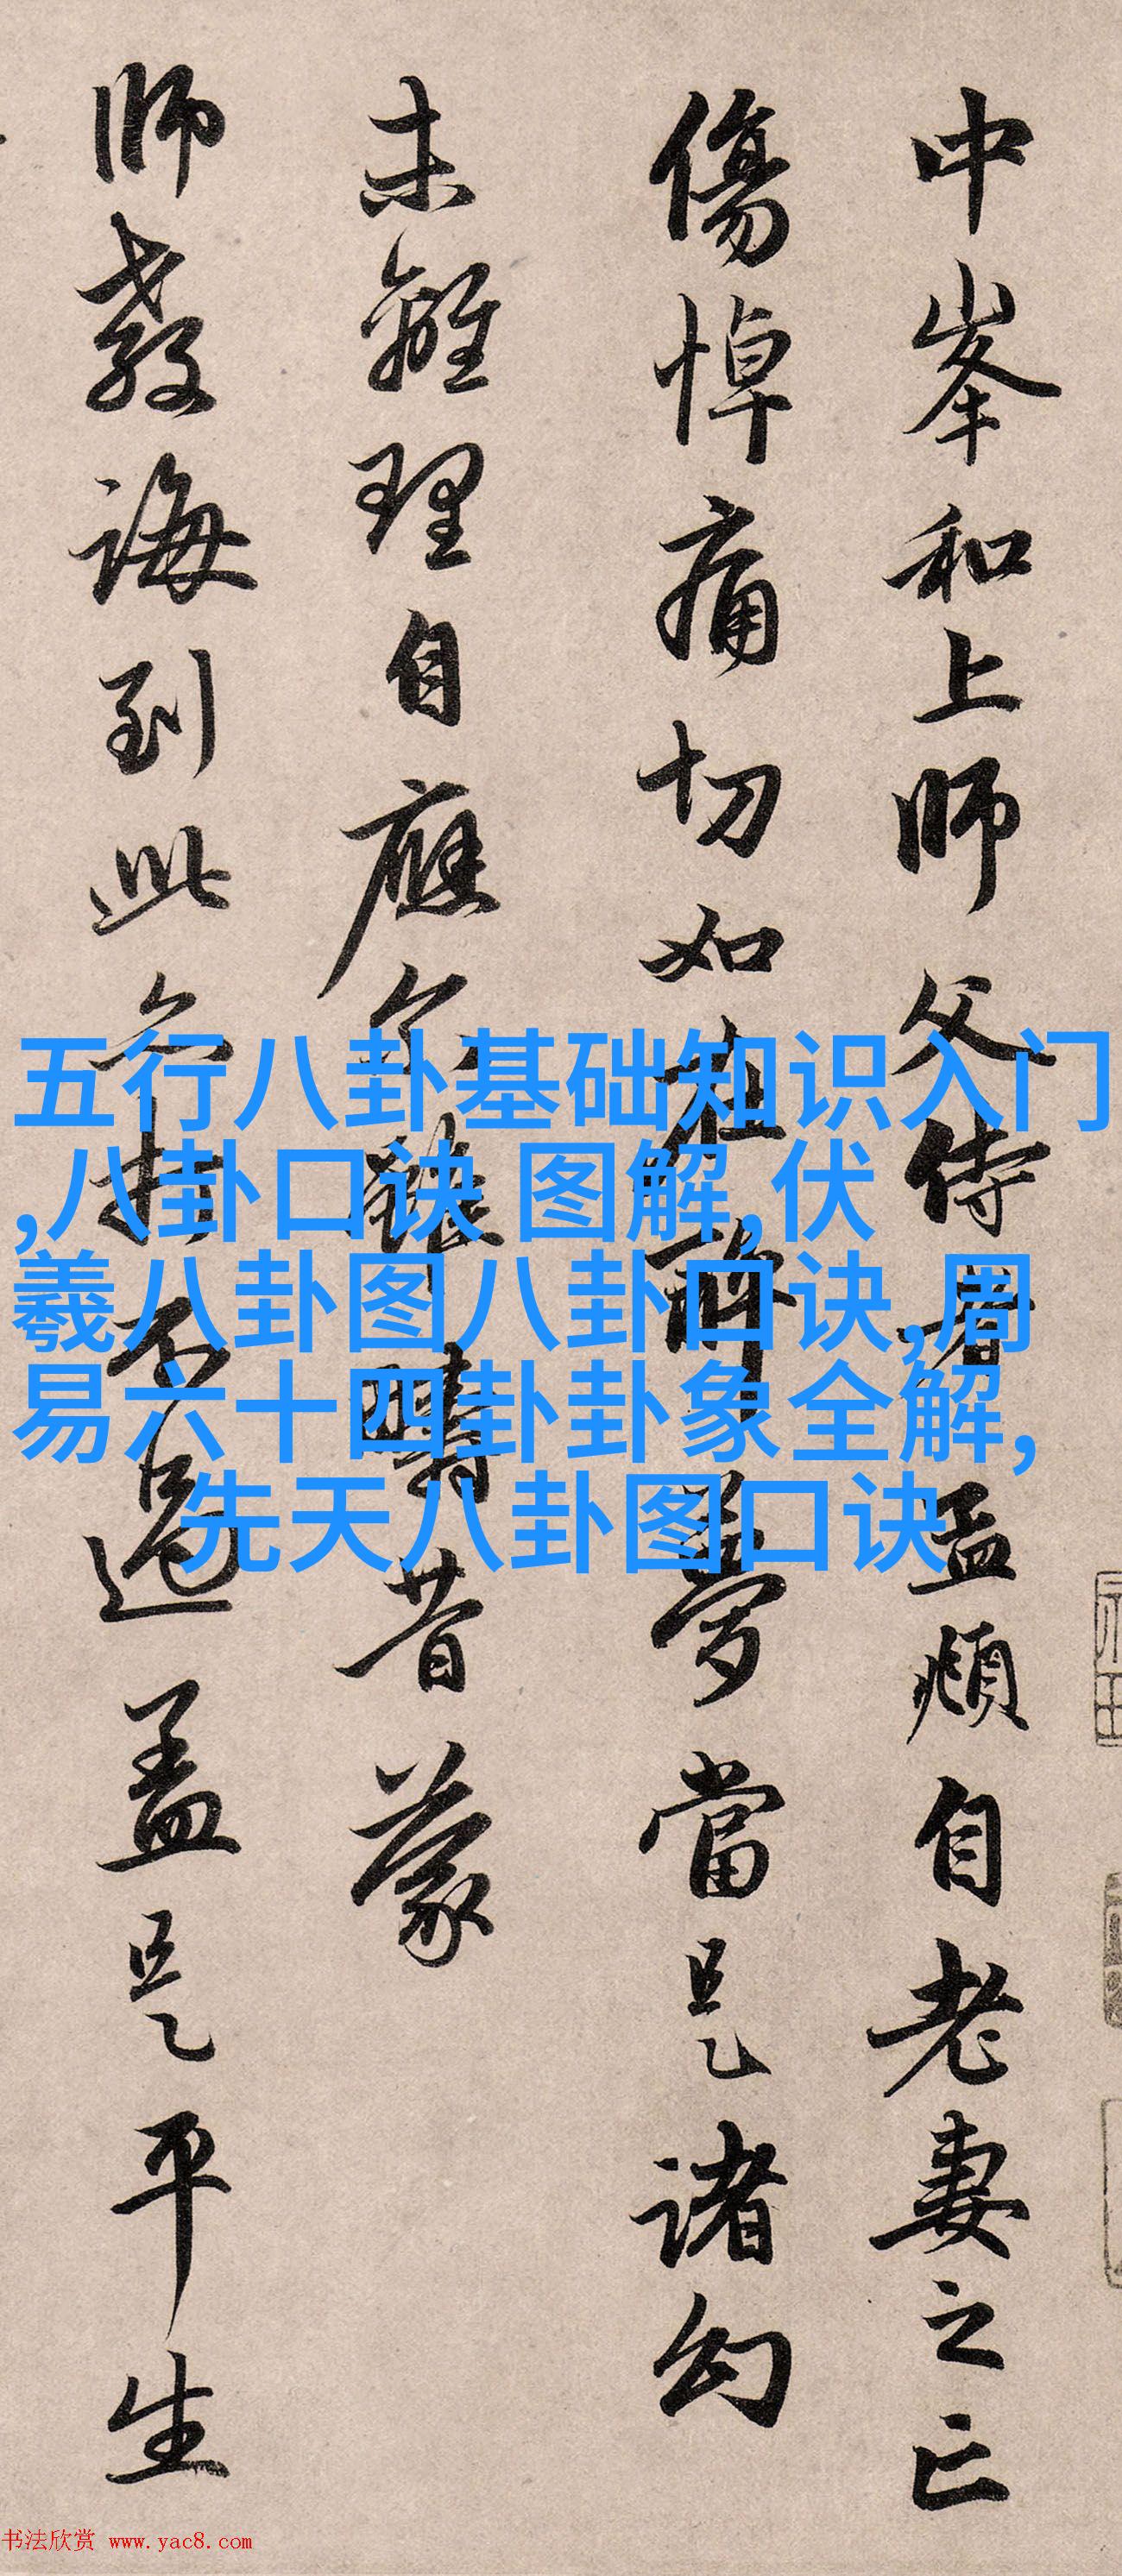 中峯和上師父侍者孟頫自老妻之亡
傷悼痛切如在醉夢當是諸幻
未離理自應尔雖疇昔蒙
師教誨到此亦打不過盖是平生
五行八卦基础知识入门
,八卦口诀 图解,伏
羲八卦图八卦口诀,周
易六十四卦卦象全解,
先天八卦图口诀
书法欣赏 www.yac8.com